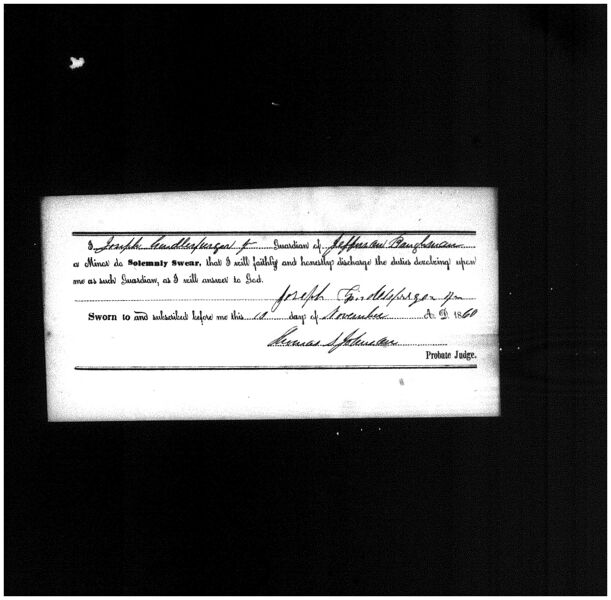 I Joseph Guardian of Jefferson Baughman
a Minor do Solemnly Swear, that I will faithfully and honestly discharge the duties devolving upon
me as such Guardian, as I will answer to God.
Joseph
Sworn to and subscribed before me this 10 day of November A. D. 1860
Thomas S Johnson
Probate Judge.